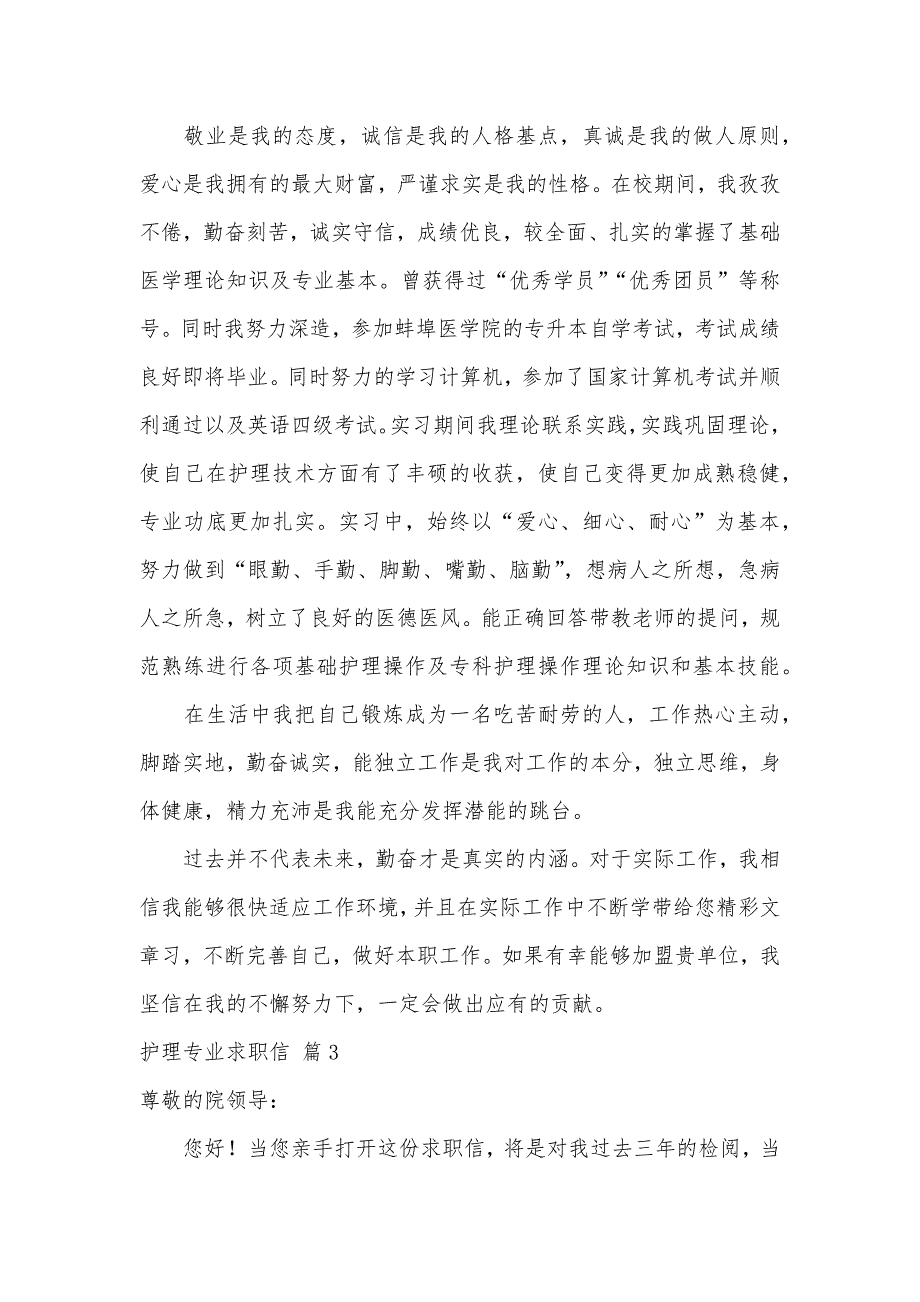 敬业是我的态度，诚信是我的人格基点，真诚是我的做人原则，
爱心是我拥有的最大财富，严谨求实是我的性格。在校期间，我孜孜
不倦，勤奋刻苦，诚实守信，成绩优良，较全面、扎实的掌握了基础
医学理论知识及专业基本。曾获得过“优秀学员”“优秀团员”等称
号。同时我努力深造，参加蚌埠医学院的专升本自学考试，考试成绩
良好即将毕业。同时努力的学习计算机，参加了国家计算机考试并顺
利通过以及英语四级考试。实习期间我理论联系实践，实践巩固理论，
使自己在护理技术方面有了丰硕的收获，使自己变得更加成熟稳健，
专业功底更加扎实。实习中，始终以“爱心、细心、耐心”为基本，
努力做到“眼勤、手勤、脚勤、嘴勤、脑勤”，想病人之所想，急病
人之所急，树立了良好的医德医风。能正确回答带教老师的提问，规
范熟练进行各项基础护理操作及专科护理操作理论知识和基本技能。
在生活中我把自己锻炼成为一名吃苦耐劳的人，工作热心主动，
脚踏实地，勤奋诚实，能独立工作是我对工作的本分，独立思维，身
体健康，精力充沛是我能充分发挥潜能的跳台。
过去并不代表未来，勤奋才是真实的内涵。对于实际工作，我相
信我能够很快适应工作环境，并且在实际工作中不断学带给您精彩文
章习，不断完善自己，做好本职工作。如果有幸能够加盟贵单位，我
坚信在我的不懈努力下，一定会做出应有的贡献。
护理专业求职信 篇3
尊敬的院领导：
您好！当您亲手打开这份求职信，将是对我过去三年的检阅，当